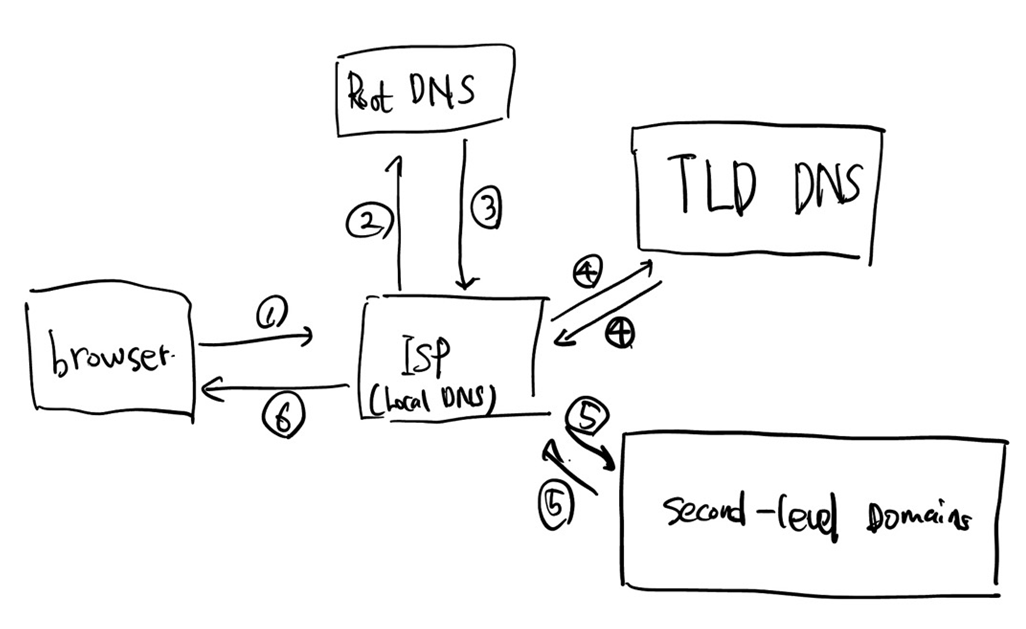 Root DNS
TLD DNS
②
③
④
①
browser.
ISP
(Local DNS)
④
⑥
⑤
⑤
Second-level Domains